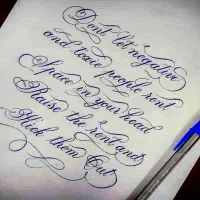 Don't let negative
and toxic people rent
Space in your head
Raise the rent and
Kick them Out